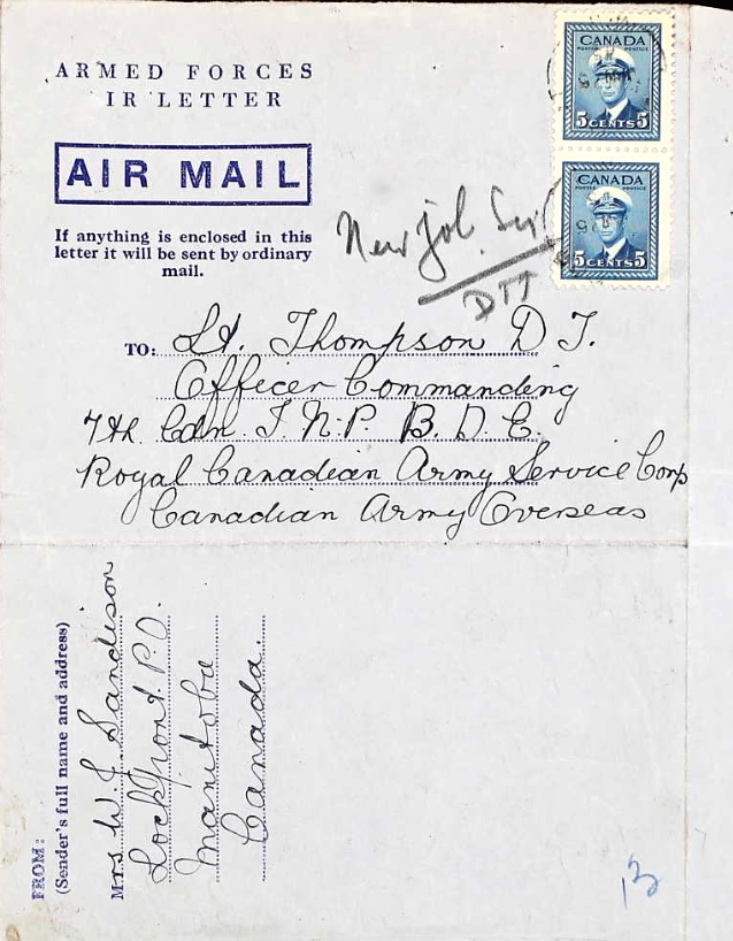 ARMED FORCES
IR LETTER
AIR MAIL
If anything is enclosed in this
letter it will be sent by ordinary
mail.
CANADA
POSTES POSTAGE
5 CENTS 5
CANADA
POSTES POSTAGE
5 CENTS 5
New job
DTT
TO: Lt. Thompson D T.
Officer Commanding
7th Cdn. I. N. P. B. D. E.
Royal Canadian Army Service Corp
Canadian Army Overseas
FROM:
(Sender's full name and address)
Mrs W. J. Sandison
Lockport. P.O.
Manitoba
Canada.
13